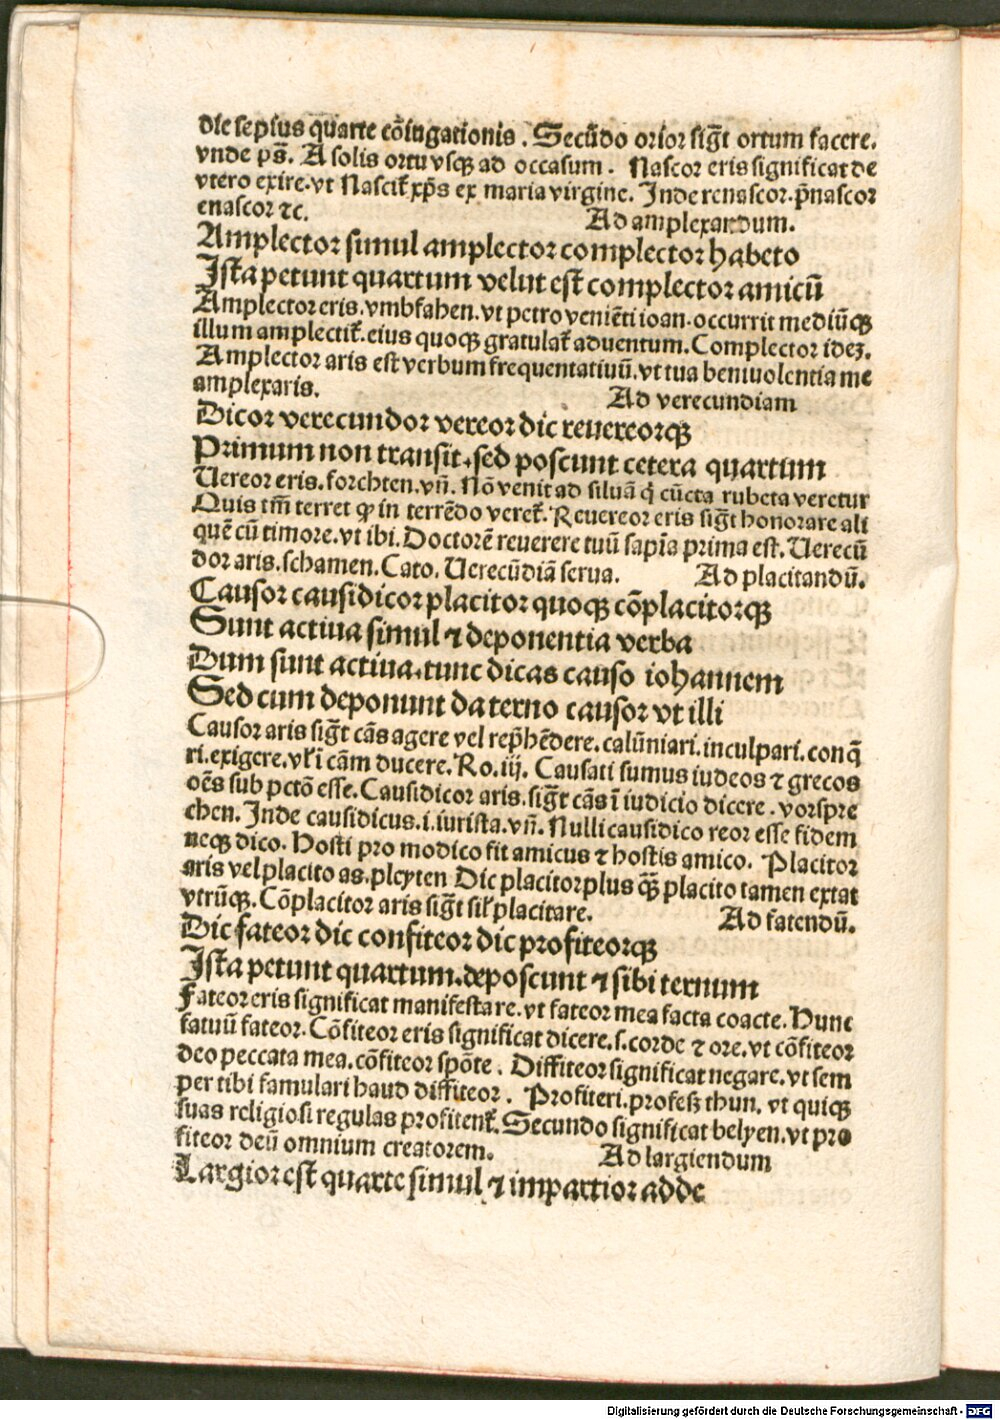 die sepius quarte cōiugationis. Secūdo orior sigt̄ ortum facere.
vnde ps̄. A solis ortu vsqꝫ ad occasum. Nascor eris significat de
vtero exire. vt Nascit̄ xp̄s ex maria virgine. Inde renascor. p̄nascor
enascor ⁊c. Ad amplexandum.
Amplector simul amplector complector habeto
Ista petunt quartum velut est complector amicū
Amplector eris. vmbfahen. vt petro veniēti ioan. occurrit mediūqꝫ
illum amplectit̄. eius quoqꝫ gratulat̄ aduentum. Complector ideꝫ.
Amplector aris est verbum frequentatiuū. vt tua beniuolentia me
amplexaris. Ad verecundiam
Dicor verecundor vereor dic reuereorqꝫ
Primum non transit. sed poscunt cetera quartum
Uereor eris. forchten. vn̄. Nō venit ad siluā q̄ cūcta rubeta veretur
Quis tm̄ terret ꝙ in terrēdo veret̄. Reuereor eris sigt̄ honorare ali
quē cū timore. vt ibi. Doctorē reuerere tuū sapīa prima est. Uerecū
dor aris. schamen. Cato. Uerecūdiā serua. Ad placitandū.
Causor causidicor placitor quoqꝫ cōplacitorqꝫ
Sunt actiua simul ⁊ deponentia verba
Dum sunt actiua. tunc dicas causo iohannem
Sed cum deponunt da terno causor vt illi
Causor aris sigt̄ cās agere vel rep̄hēdere. calūniari. inculpari. conq̄
ri. exigere. vl̄ i cām ducere. Ro. iij. Causati sumus iudeos ⁊ grecos
oēs sub pctō esse. Causidicor aris. sigt̄ cās ī iudicio dicere. vorspre
chen. Inde causidicus. i. iurista. vn̄. Nulli causidico reor esse fidem
neqꝫ dico. Hosti pro modico fit amicus ⁊ hostis amico. Placitor
aris vel placito as. pleyten Dic placitor plus qꝫ̄ placito tamen extat
vtrūqꝫ. Cōplacitor aris sigt̄ sil̄ placitare. Ad fatendū.
Dic fateor dic confiteor dic profiteorqꝫ
Ista petunt quartum. deposcunt ⁊ sibi ternum
Fateor eris significat manifestare. vt fateor mea facta coacte. Hunc
fatuū fateor. Cōfiteor eris significat dicere. s. corde ⁊ ore. vt cōfiteor
deo peccata mea. cōfiteor spōte. Diffiteor significat negare. vt sem
per tibi famulari haud diffiteor. Profiteri. profeß thun. vt quiqꝫ
suas religiosi regulas profitent̄. Secundo significat belyen. vt pro
fiteor deū omnium creatorem. Ad largiendum
Largior est quarte simul ⁊ impartior adde
Digitalisierung gefördert durch die Deutsche Forschungsgemeinschaft - DFG